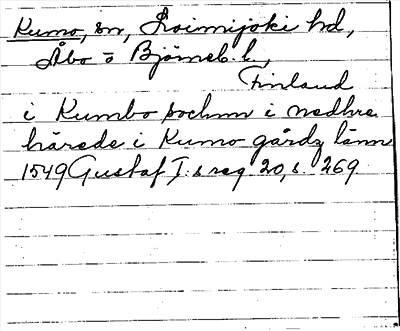 Kumo, sn, Loimijoki hd,
Åbo o Björneb. l.,
Finland
i Kumbo sochnn i nedhre
härede i Kumo gårdz länn
1549 Gustaf I:s reg. 20, s. 269